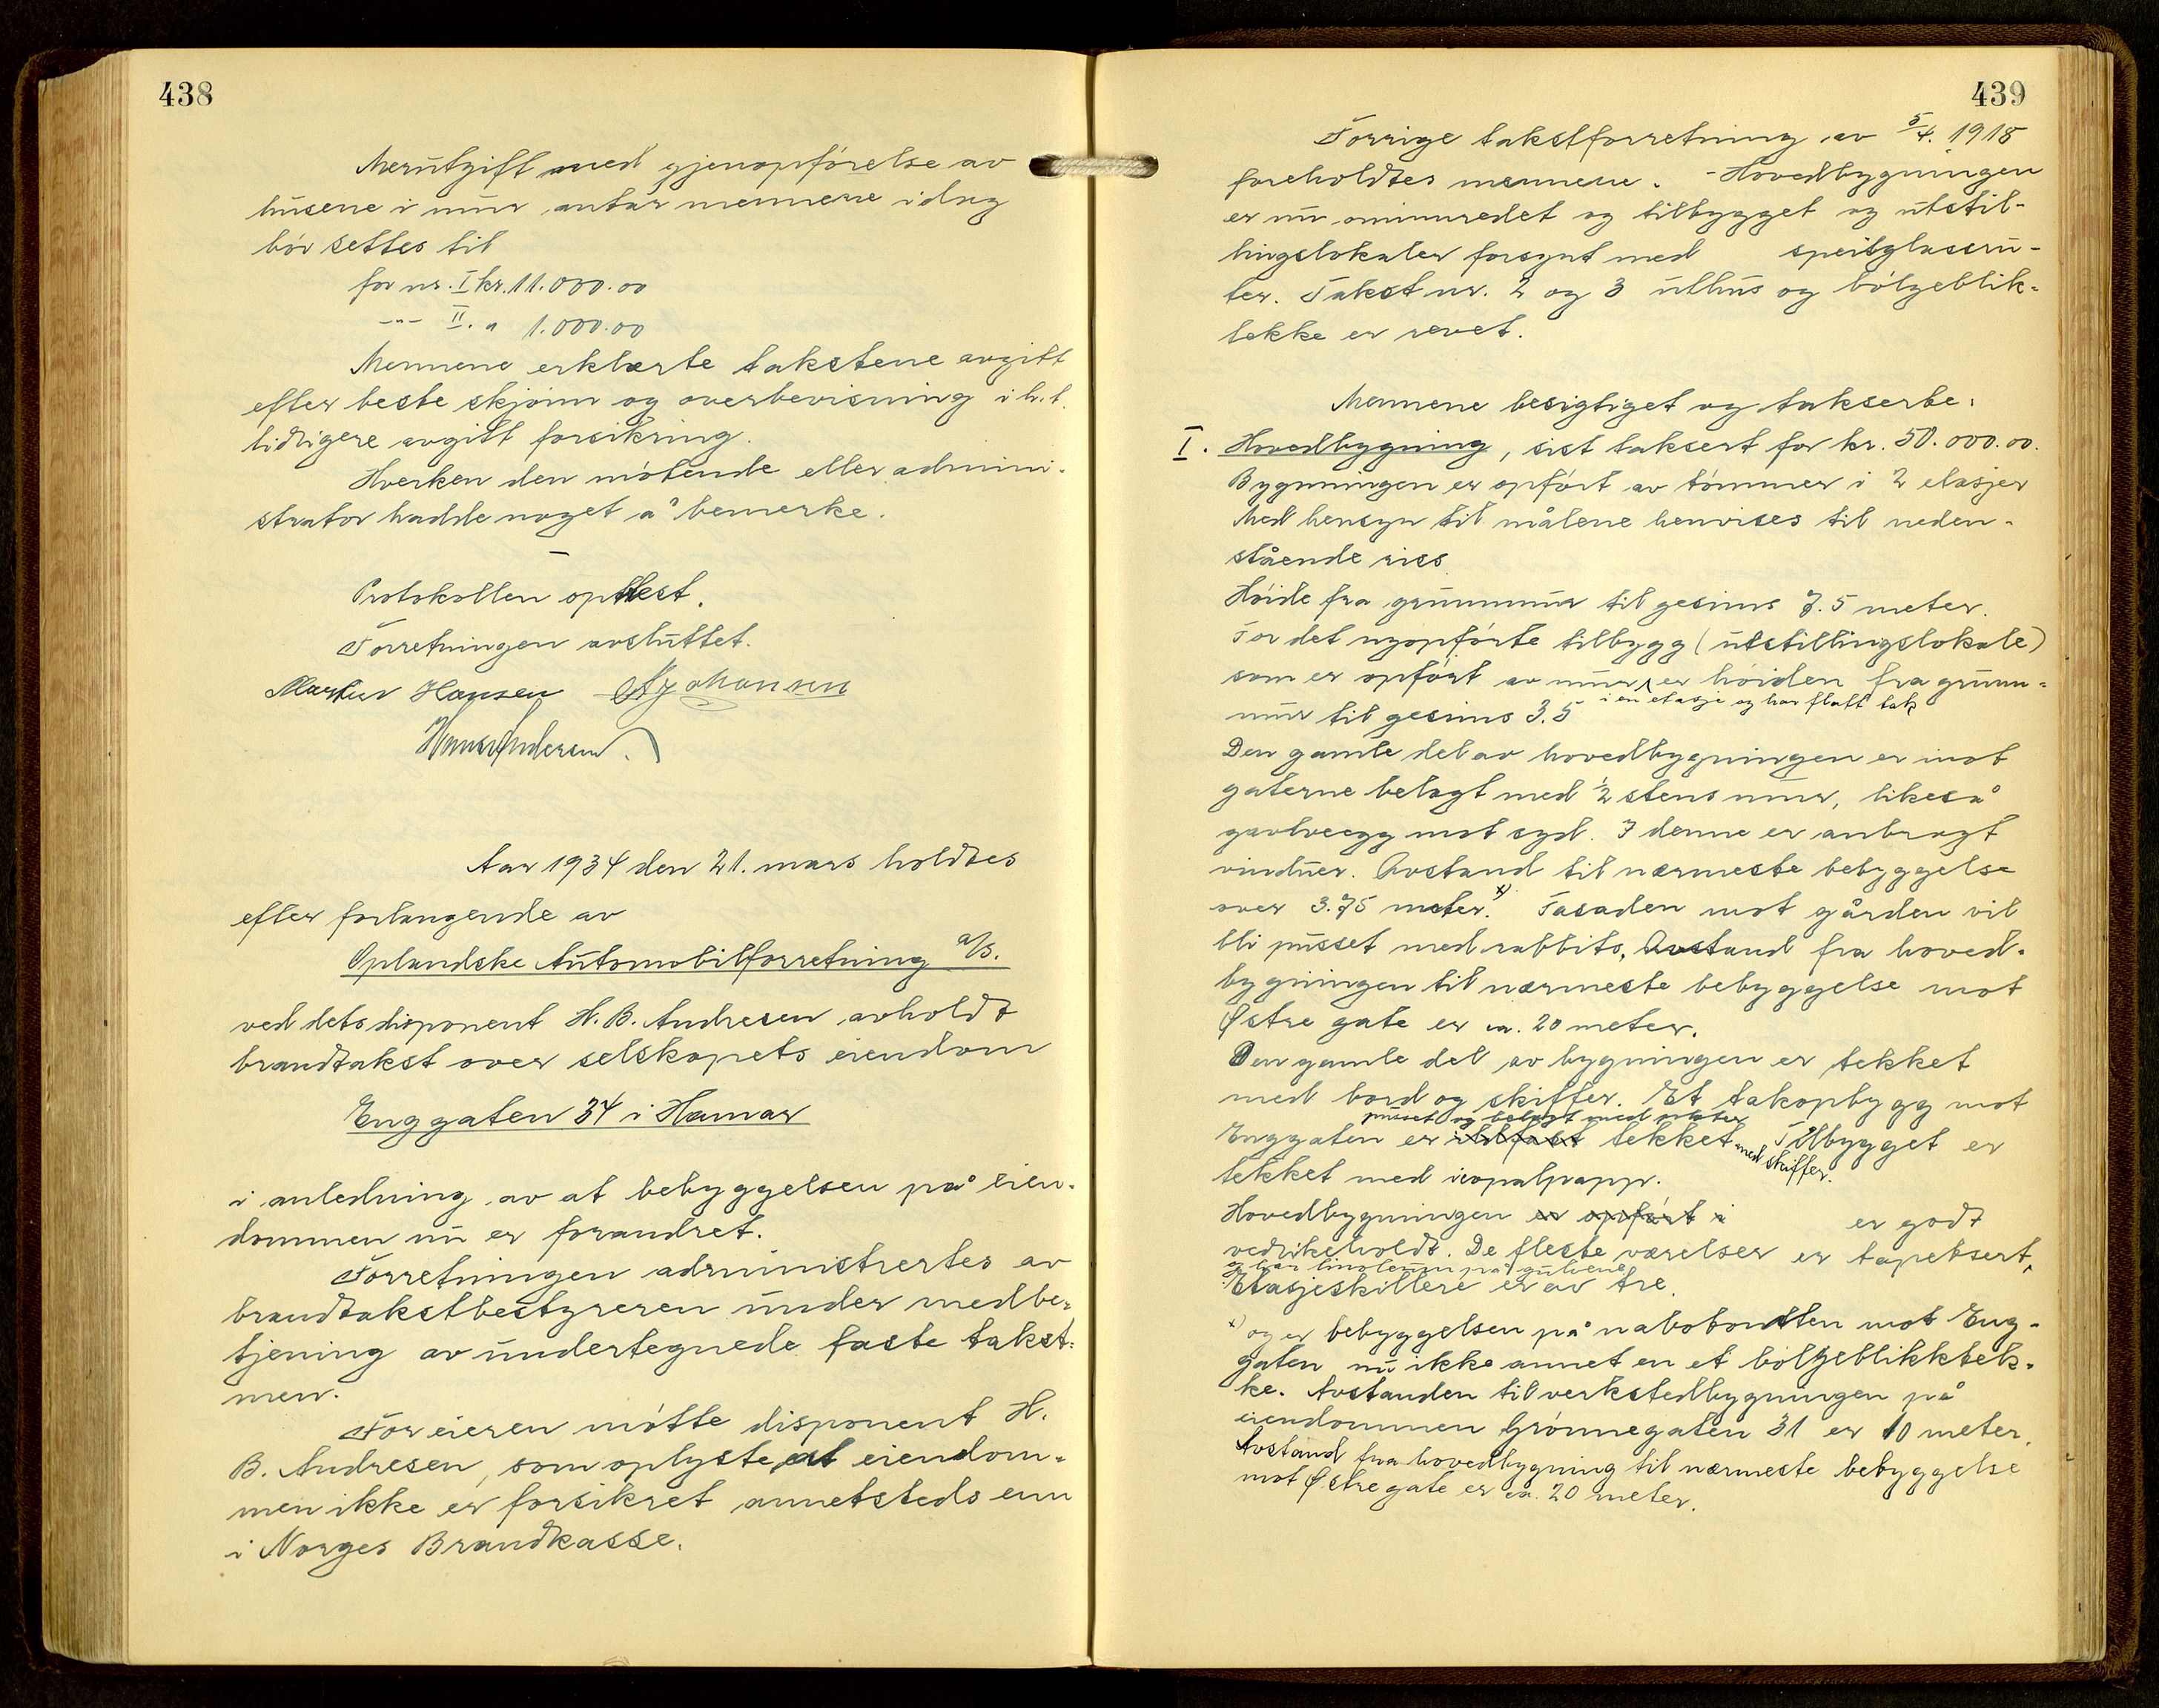 438
Merutgift med gjenopførelse av
husene i mur antar mennene idag
bør settes til
for nr. I kr. 11.000.00
-"- II. " 1.000.00
Mennene erklærte takstene avgitt
efter beste skjønn og overbevisning i h.t.
tidligere avgitt forsikring.
Hverken den møtende eller admini-
strator hadde noget å bemerke.
Protokollen oplest.
Forretningen avsluttet.
Martin Hansen A Johansen
Hans Andersen.
Aar 1934 den 21. mars holdtes
efter forlangende av
Oplandske Automobilforretning a/s.
ved dets disponent H. B. Andresen avholdt
brandtakst over selskapets eiendom
Enggaten 34 i Hamar
i anledning av at bebyggelsen på eien-
dommen nu er forandret.
Forretningen administrertes av
brandtakstbestyreren under medbe-
tjening av undertegnede faste takst-
men.
For eieren møtte disponent H.
B. Andresen, som oplyste at eiendom-
men ikke er forsikret annetsteds enn
i Norges Brandkasse.
439
Forrige takstforretning av 5/4. 1918
foreholdtes mennene. - Hovedbygningen
er nu ominnredet og tilbygget og utstil-
lingslokaler forsynt med speilglassru-
ter. Takst nr. 2 og 3 uthus og bølgeblik-
tekke er revet.
Mennene besigtiget og takserte:
I. Hovedbygning, sist taksert for kr. 50.000.00.
Bygningen er opført av tømmer i 2 etasjer
Med hensyn til målene henvises til neden-
stående riss.
Høide fra grunnmur til gesims 7.5 meter.
For det nyopførte tilbygg (utstillingslokale)
som er opført av mur er høiden fra grunn-
i en etasje og har flatt tak
mur til gesims 3.5
Den gamle del av hovedbygningen er mot
gaterne belagt med 1/2 stens mur, likeså
gavlvegg mot syd. I denne er anbragt
vinduer. Avstand til nærmeste bebyggelse
over 3.75 meter. x) Fasaden mot gården vil
bli pusset med rabbits. Avstand fra hoved-
bygningen til nærmeste bebyggelse mot
Østre gate er ca. 20 meter.
Den gamle del av bygningen er tekket
med bord og skiffer. Et takopbygg mot
pusset og belagt med plater
Enggaten er ildfast tekket med skiffer. Tilbygget er
tekket med icopalpapp.
Hovedbygningen er opført i er godt
vedlikeholdt. De fleste værelser er tapetsert,
og har linoleum på gulvene
Etasjeskillere er av tre.
x) og er bebyggelsen på nabotomten mot Eng-
gaten nu ikke annet en et bølgeblikktek-
ke. Avstanden til verkstedbygningen på
eiendommen Grønnegaten 31 er 10 meter.
Avstand fra hovedbygning til nærmeste bebyggelse
mot Østre gate er ca. 20 meter.